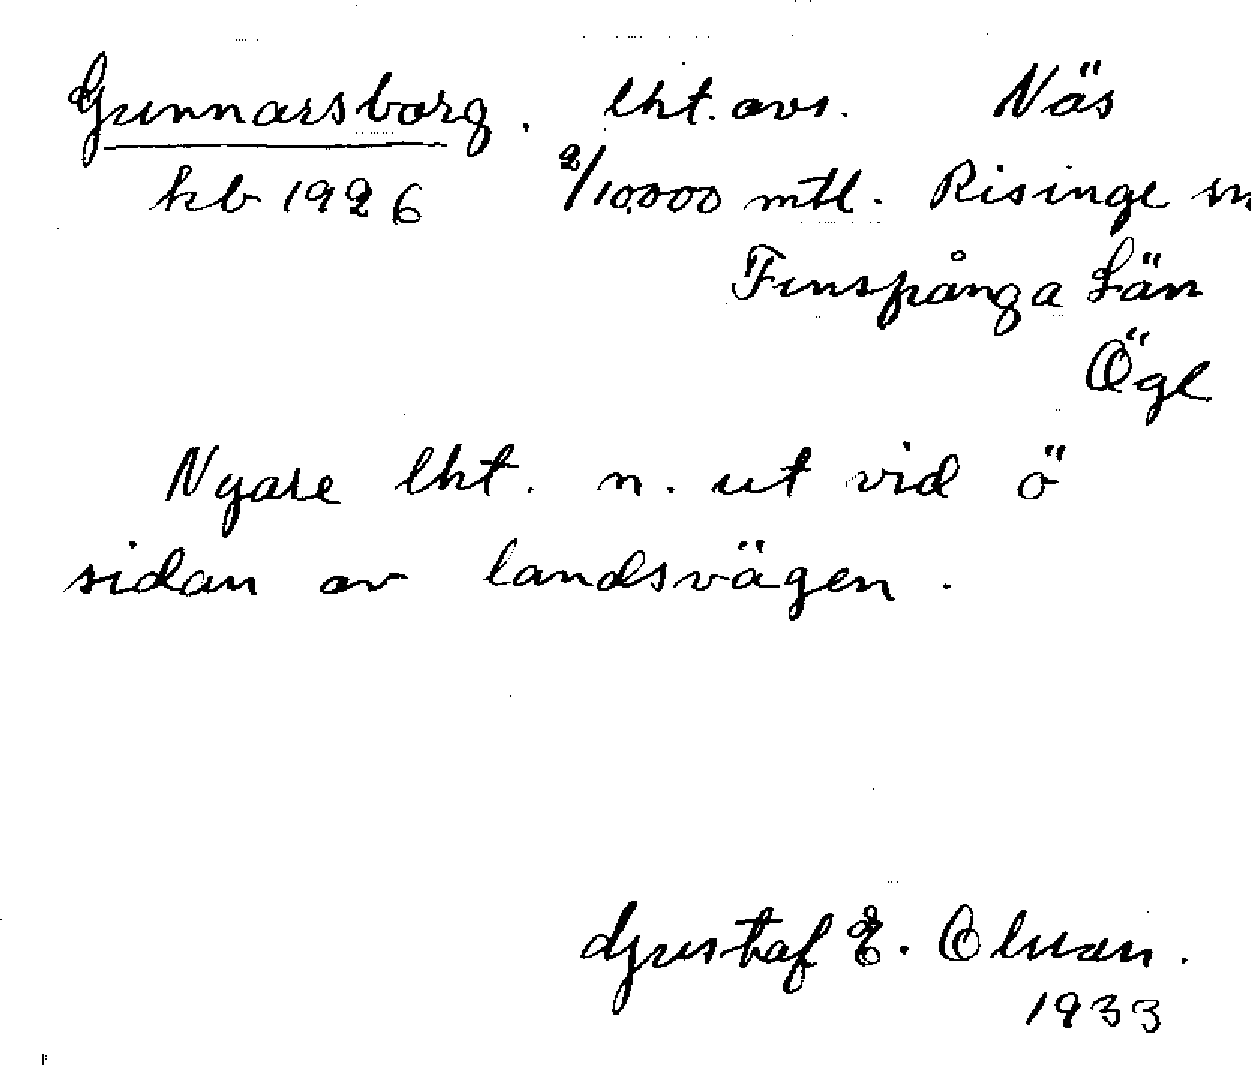 Gunnarsborg. lht. avs. Näs
kb 1926 2/10000 mtl. Risinge sn
Finspånga Län
Ögl
Nyare lht. n. ut vid ö
sidan av landsvägen.
Gustaf E. Olman.
1933